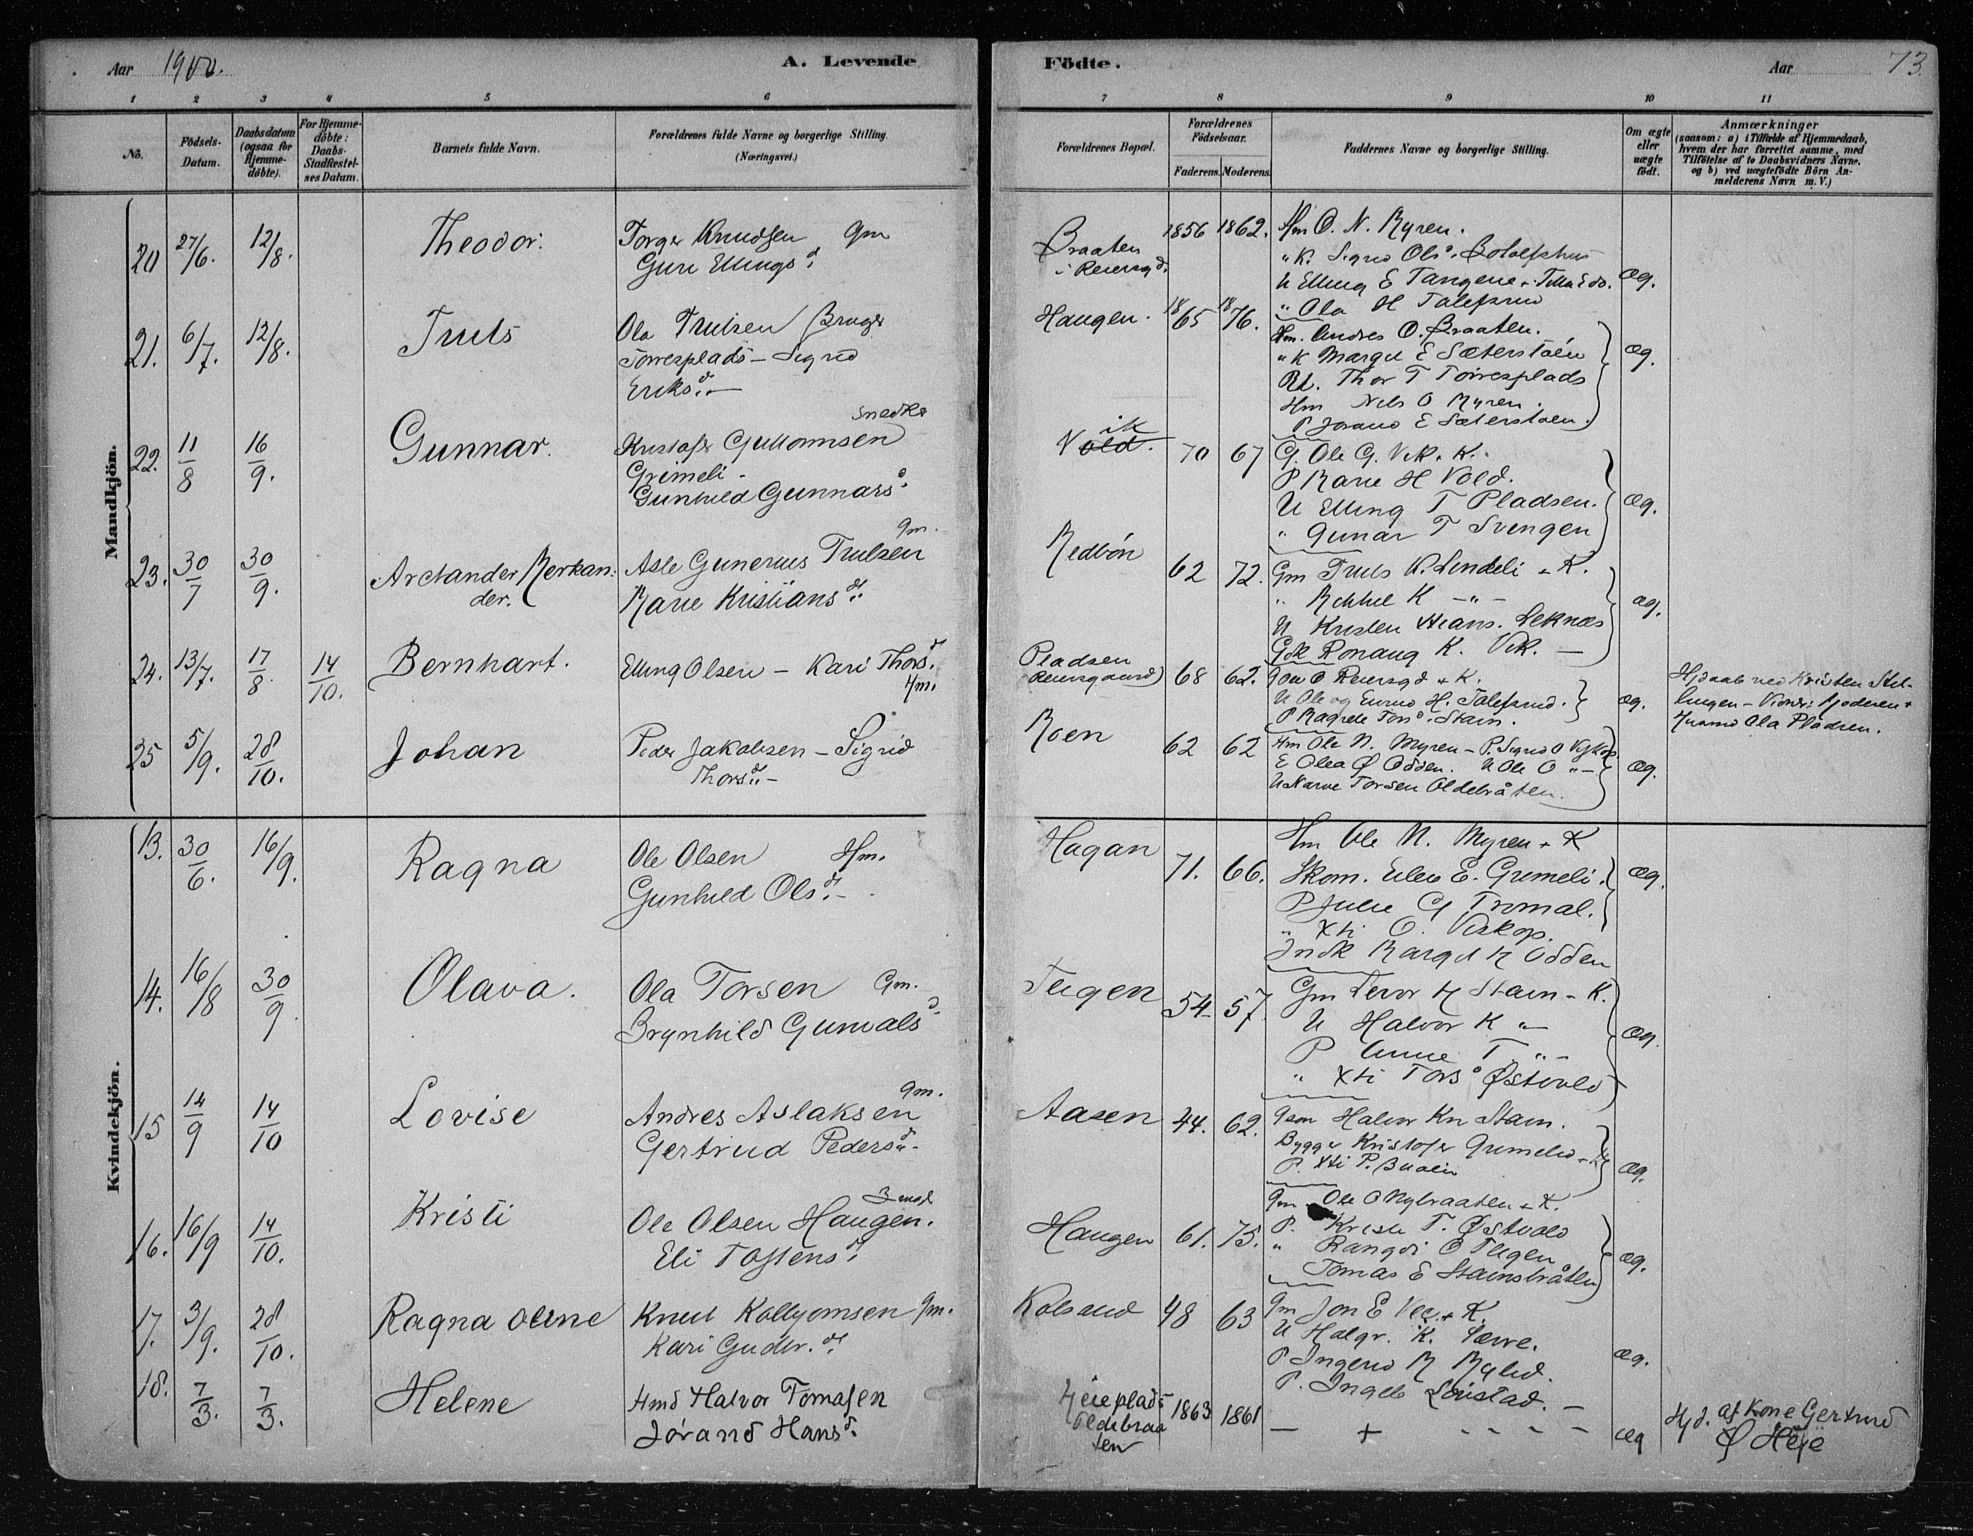 Aar 1900.
A. Levende
Födte.
Aar
73.
1 2 3 4 5 6 7 8 9 10 11
No.
Födsels-
Datum.
Daabsdatum
(ogsaa for
Hjemme-
döbte).
For Hjemme-
döbte:
Daabs-
Stadfæstel-
ses Datum.
Barnets fulde Navn.
Forældrenes fulde Navne og borgerlige Stilling.
(Næringsvei.)
Forældrenes Bopæl.
Forældrenes
Födselsaar.
Faderens. Moderens.
Faddernes Navne og borgerlige Stilling.
Om ægte
eller
uægte
födt.
Anmærkninger
(saasom: a) i Tilfælde af Hjemmedaab,
hvem der har forrettet samme, med
Tilföielse af to Daabsvidners Navne.
og b) ved uægtefödte Börn An-
melderens Navn m. V.)
Mandkjön.
20 27/6. 12/8. Theodor.
Torger Knudsen Gm
Guri Ellings d.
Braaten
i Reiersgd.
1856 1862.
Hm O. N. Myren.
" K. Sigrid Ols d.
U Elling E Tangene
" Ola H Talefsrud
Æg.
21. 6/7. 12/8. Truls
Ola Trulsen Bruger
Torresplads - Sigrid
Eriks d. -
Haugen. 1865 1876.
Hm. Andres O. Braaten.
" K Margit E Sæterstøen
Thor T Torresplads
Hm Nils O Myren.
P Jorand E Sæterstøen.
Æg.
22. 11/8 16/9. Gunnar.
Snedker
Kristofer Guttormsen
Grimeli -
Gunhild Gunnars d.
Vold. ik
70 67
G. Ole G. Vik. K.
P Marie H Vold.
U Elling T Pladsen.
" Gunar T Svingen
Æg.
23. 30/7 30/9. Archander Merkan-
der.
Gm.
Asle Gunerius Trulsen
Marie Kristians d.
Medbön 62 72.
Gm Truls K. Lindeli + K.
" K - " -
U Kristen Hans. Leknæs
Gdk Ronaug K. Vik. -
Æg.
24. 13/7. 17/8. 14/10. Bernhart.
Elling Olsen - Kari Thors d.
Hm.
Pladsen
Reiersgaard)
68 62.
Ole O Reiersgd + K.
U Ole og H. Talefsrud.
P Stain.
Æg.
Hjdaab ved Kristen Stil-
lingen - Vidner: Moderen +
Ola Pladsen.
25 5/9. 28/10. Johan
Peder Jakobsen - Sigrid
Thors d. -
Moen 62 62
Hm Ole N. Myren - P. Sigrid O
E Olea Ø Odden. U Ole O " -
U Narve Torsen Oldebråten.
Æg.
Kvindekjön.
13. 30/6. 16/9. Ragna
Ole Olsen Hm.
Gunhild Ols d. -
Hagan 71. 66.
Hm Ole N. Myren + K
Skom. E. Grimeli.
P Julie G Tromal.
" Xti O. Viskop.
Margit N Odden
Æg.
14. 16/8 30/9. Olava.
Ola Torsen Gm.
Brynhild Gunvals d.
Teigen 54 57.
Gm Tervor H Stain - K.
U Halvor K " -
P Anne T " -
" Xti Tors d Østvold
Æg.
15 14/9 14/10 Lovise
Gm.
Andres Aslaksen
Gertrud Peders d. -
Aasen 44. 62.
Gm Halvor Kn Stain.
Bygger Kristofer Grimeli
P. Xti P. Buoin
Æg.
16. 16/9 14/10. Kristi
Ole Olsen Haugen.
Eli Tostens d.
Haugen 61. 75.
Gm Ole O Nybraaten + K.
P. Kristi T. Østvold
" Rangdi O Teigen
Tomas E Stainsbråten
Æg.
17. 3/9. 28/10. Ragna Oline
Knut Kolbjornsen Gm.
Kari Gudbr. d.
Kolsrud 48 63
Gm Jon E + K.
U Halgr. K.
P Ingerid
P. Ingeb
Æg.
18. 7/3. 7/3. Helene
Hmd Halvor Tomasen
Jörand Hans d.
Heieplads
Oldebraa
ten
1863 1861
- + - - - -
Æg
Hjd. af Kone Gertrud
Ø Heje